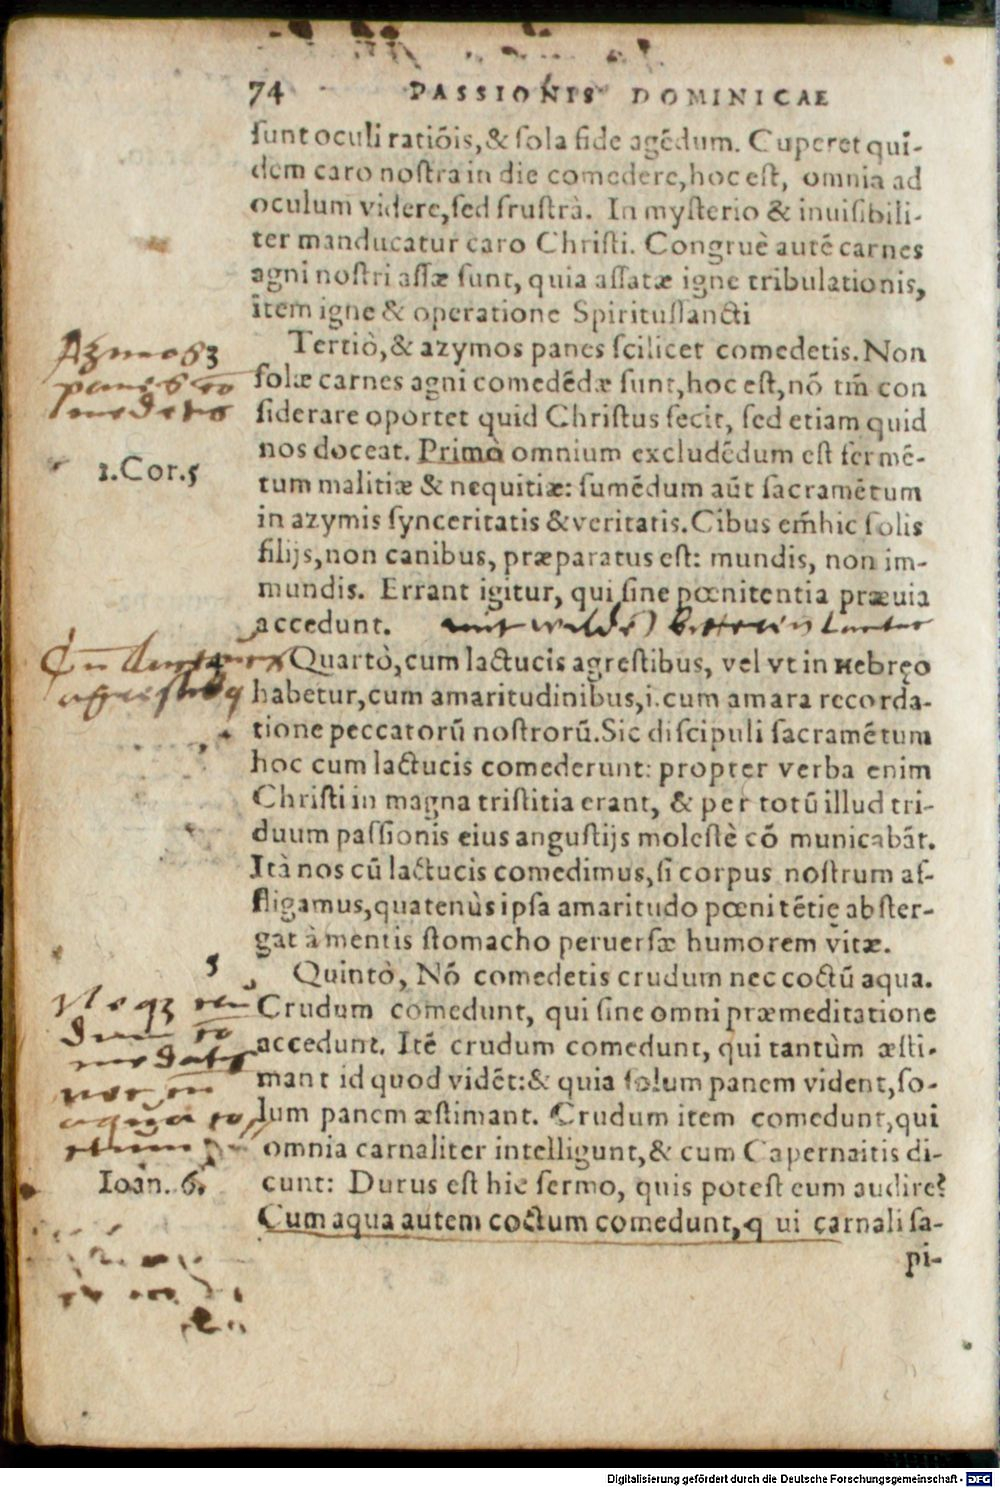 74 PASSIONIS DOMINICAE
sunt oculi ratiõis, & sola fide agẽdum. Cuperet qui-
dem caro nostra in die comedere, hoc est, omnia ad
oculum videre, sed frustrà. In mysterio & inuisibili-
ter manducatur caro Christi. Congruè autẽ carnes
agni nostri assæ sunt, quia assatæ igne tribulationis,
item igne & operatione Spiritussancti
Tertiò, & azymos panes scilicet comedetis. Non
solæ carnes agni comedẽdæ sunt, hoc est, nõ tm̃ con
siderare oportet quid Christus fecit, sed etiam quid
nos doceat. Primò omnium excludẽdum est fermẽ-
tum malitiæ & nequitiæ: sumẽdum aũt sacramẽtum
in azymis synceritatis & veritatis. Cibus em̃ hic solis
filijs, non canibus, præparatus est: mundis, non im-
mundis. Errant igitur, qui sine pœnitentia præuia
accedunt. mit wilde
Quartò, cum lactucis agrestibus, vel vt in Hebręo
habetur, cum amaritudinibus, i. cum amara recorda-
tione peccatorũ nostrorũ. Sic discipuli sacramẽtum
hoc cum lactucis comederunt: propter verba enim
Christi in magna tristitia erant, & per totũ illud tri-
duum passionis eius angustijs molestè cõ municabãt.
Ità nos cũ lactucis comedimus, si corpus nostrum af-
fligamus, quatenùs ipsa amaritudo pœnitẽtię abster-
gat à mentis stomacho peruersæ humorem vitæ.
Quintò, Nõ comedetis crudum nec coctũ aqua.
Crudum comedunt, qui sine omni præmeditatione
accedunt. Itẽ crudum comedunt, qui tantùm æsti-
mant id quod vidẽt: & quia solum panem vident, so-
lum panem æstimant. Crudum item comedunt, qui
omnia carnaliter intelligunt, & cum Capernaitis di-
cunt: Durus est hic sermo, quis potest eum audire?
Cum aqua autem coctum comedunt, q ui carnali sa-
pi-
Azmos
panes co
medetis
1.Cor.5
agrestibus
5
Neqz cru
dum co
medatis
nec in
aqua co
ctum
Ioan. 6.
Digitalisierung gefördert durch die Deutsche Forschungsgemeinschaft - DFG